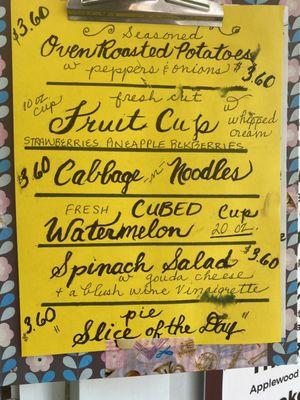 $3.60
Seasoned
Oven Roasted Potatoes
w peppers & onions $3.60
10 oz cup
fresh cut
Fruit Cup
w whipped cream
STRAWBERRIES PINEAPPLE BLKBERRIES
$3.60
Cabbage -n- Noodles
FRESH CUBED Cup
Watermelon 20 oz.
Spinach Salad $3.60
w gouda cheese
+ a blush wine Vinaigrette
$3.60
pie
"Slice of the Day"
Applewood